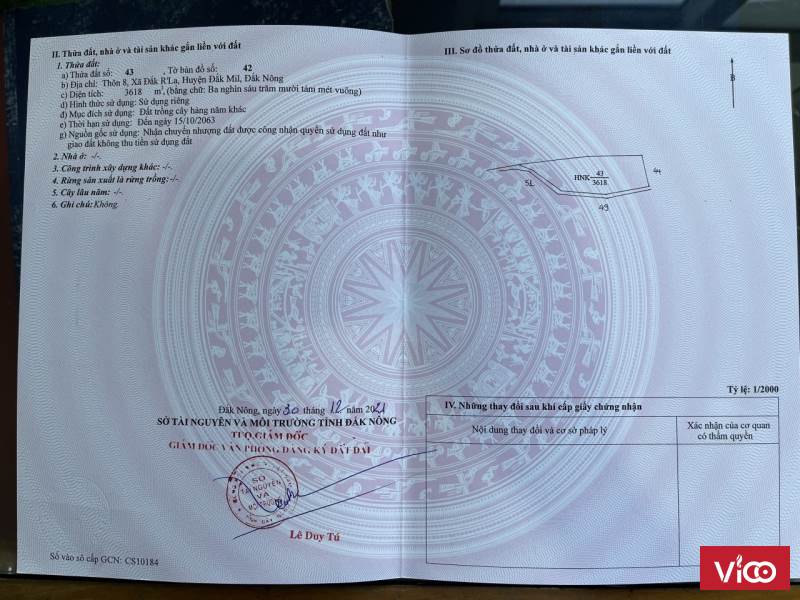 II. Thửa đất, nhà ở và tài sản khác gắn liền với đất
1. Thửa đất:
a) Thửa đất số: 43 , Tờ bản đồ số: 42
b) Địa chỉ: Thôn 8, Xã Đắk R'La, Huyện Đắk Mil, Đắk Nông
c) Diện tích: 3618 m², (bằng chữ: Ba nghìn sáu trăm mười tám mét vuông)
d) Hình thức sử dụng: Sử dụng riêng
đ) Mục đích sử dụng: Đất trồng cây hàng năm khác
e) Thời hạn sử dụng: Đến ngày 15/10/2063
g) Nguồn gốc sử dụng: Nhận chuyển nhượng đất được công nhận quyền sử dụng đất như
giao đất không thu tiền sử dụng đất
2. Nhà ở: -/-
3. Công trình xây dựng khác: -/-
4. Rừng sản xuất là rừng trồng: -/-
5. Cây lâu năm: -/-
6. Ghi chú: Không.
Đắk Nông, ngày 30 tháng 12 năm 2021
SỞ TÀI NGUYÊN VÀ MÔI TRƯỜNG TỈNH ĐẮK NÔNG
TUQ.GIÁM ĐỐC
GIÁM ĐỐC VĂN PHÒNG ĐĂNG KÝ ĐẤT ĐAI
SỞ
TÀI NGUYÊN
VÀ
MÔI TRƯỜNG
Lê Duy Tú
Số vào sổ cấp GCN: CS10184
III. Sơ đồ thửa đất, nhà ở và tài sản khác gắn liền với đất
B
HNK 43
3618
44
51
49
Tỷ lệ: 1/2000
IV. Những thay đổi sau khi cấp giấy chứng nhận
Nội dung thay đổi và cơ sở pháp lý
Xác nhận của cơ quan
có thẩm quyền
ViCO